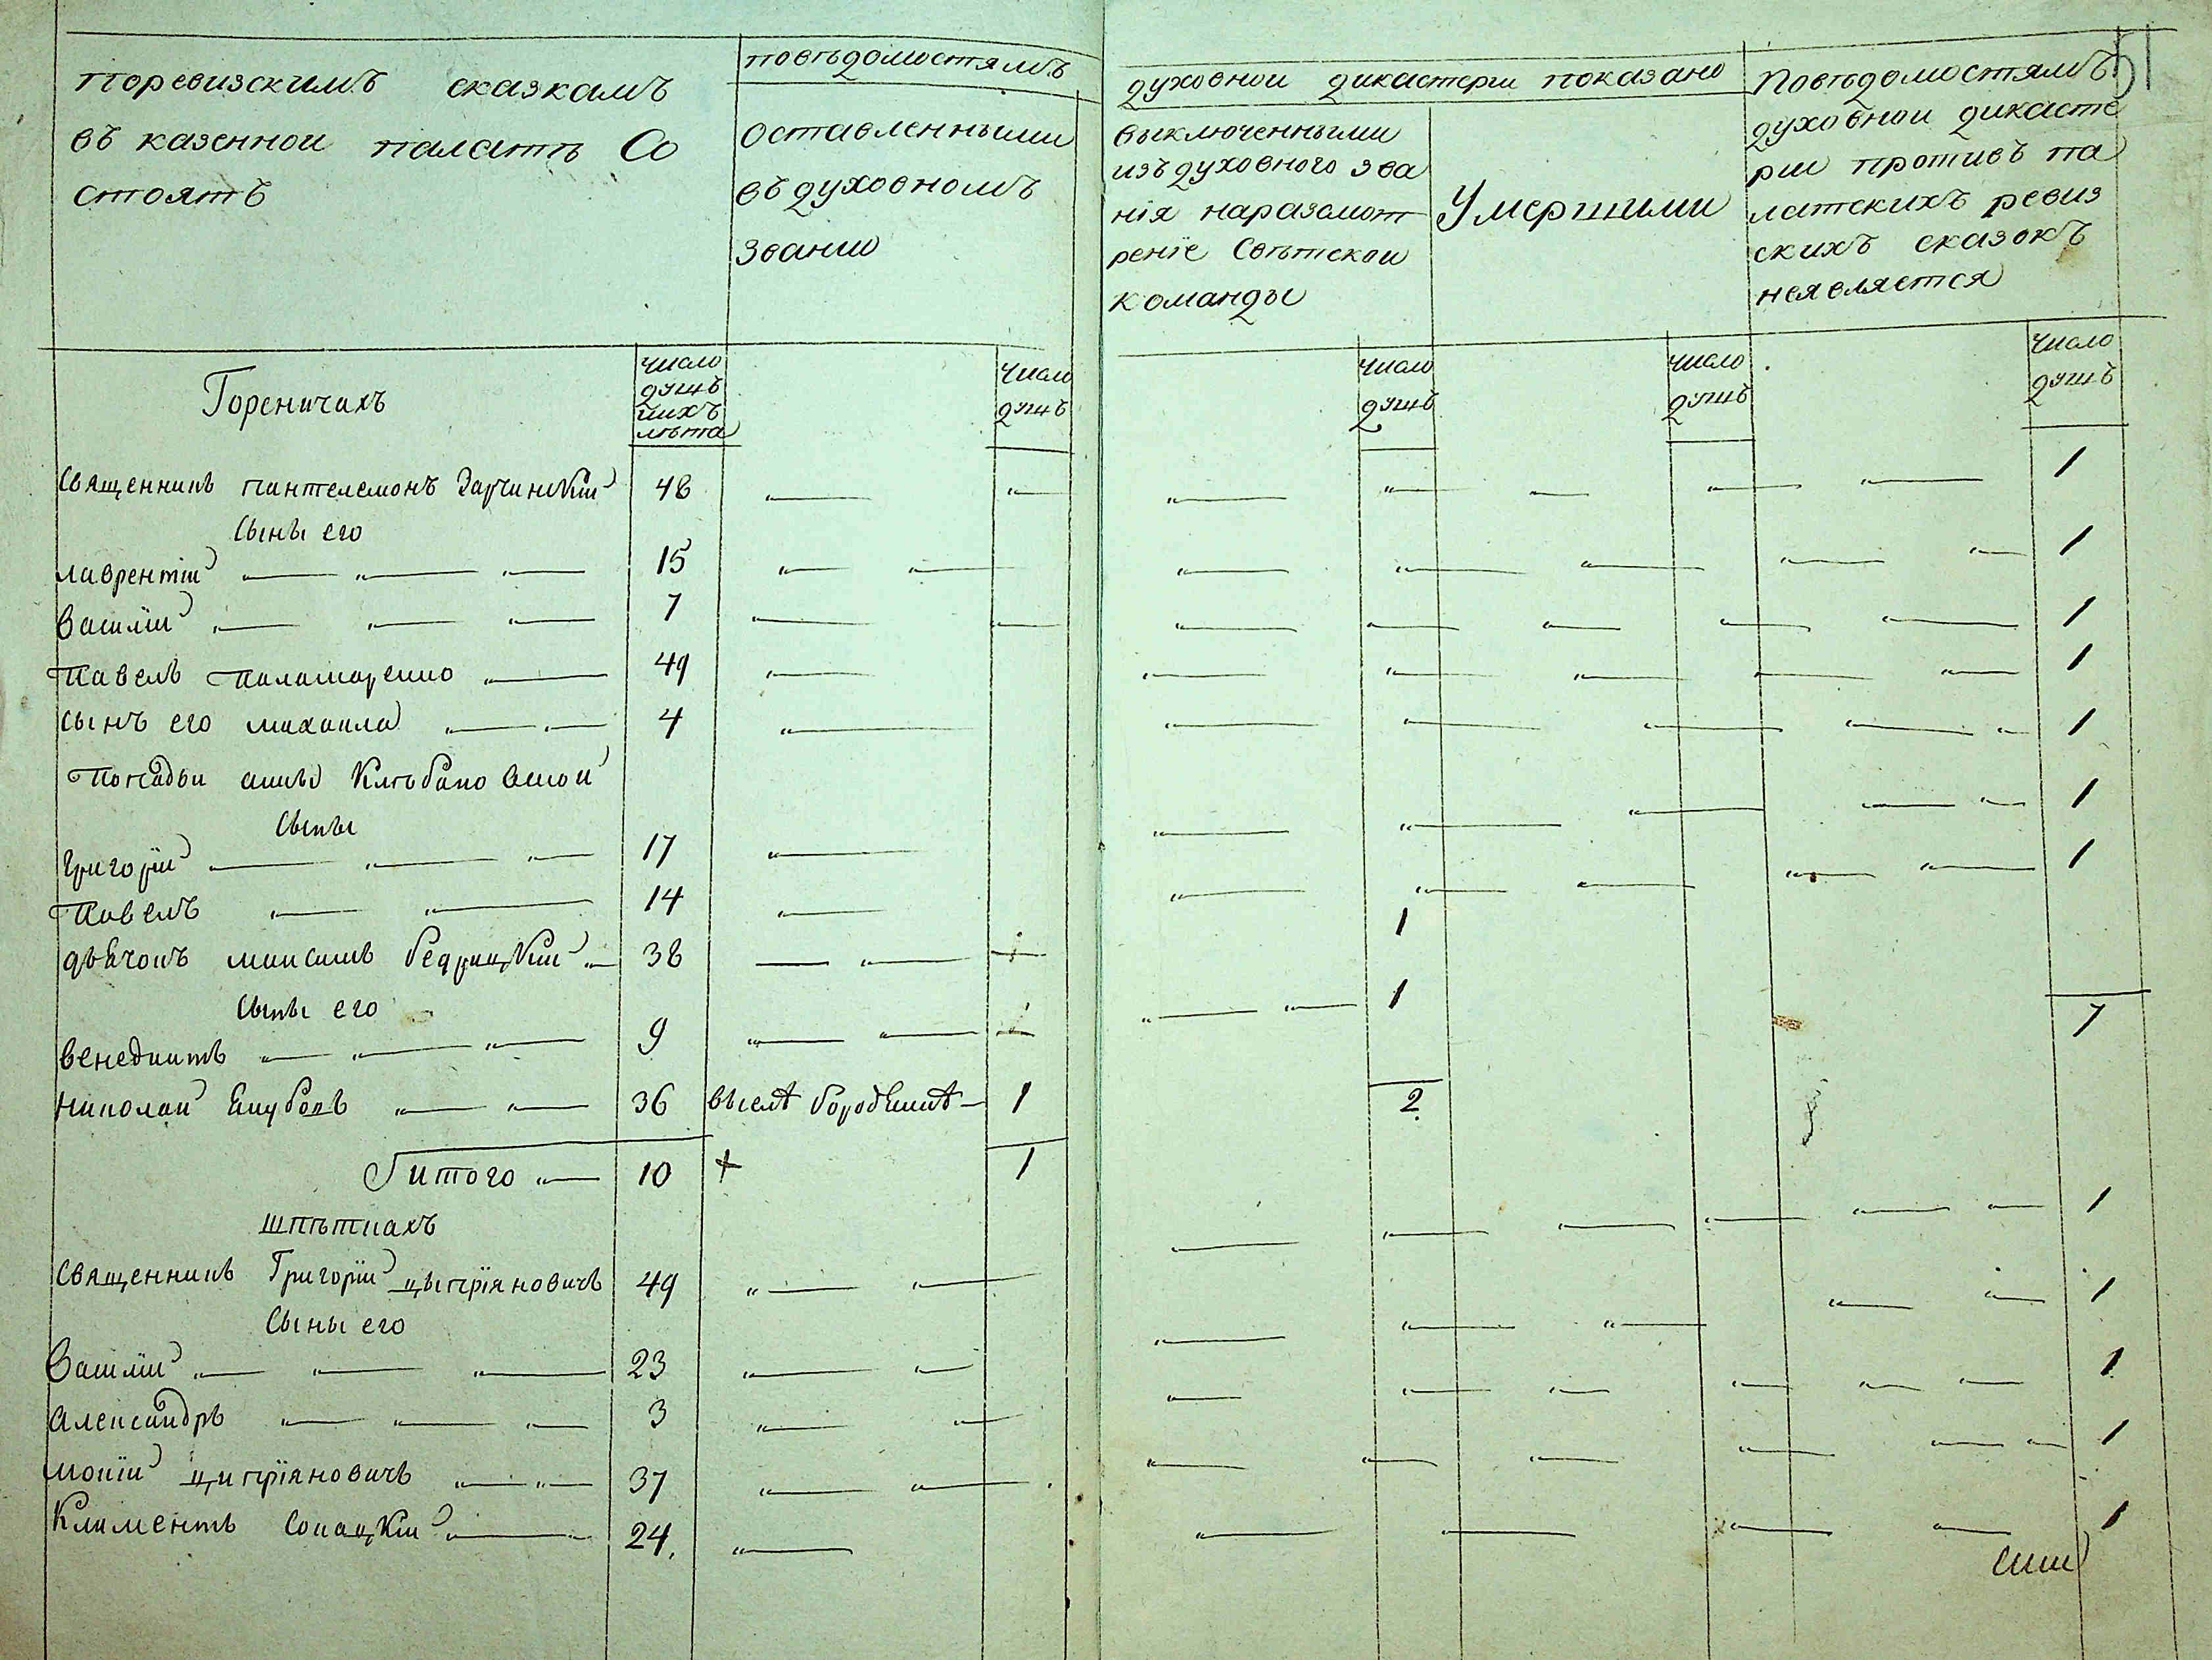 поревизскимъ сказкамъ
въ казенной палатѣ Со
стоятъ
повѣдомостямъ
оставленными
въ духовномъ
звании
духовной дикастерии показано
выключенными
изъ духовного зва
нія наразсмот
реніе Свѣтской
команды
Умершими
Повѣдомостямъ 51
духовной дикасте
рии противъ па
латскихъ ревиз
скихъ сказокъ
неявляется
Гореничахъ
число
душъ
иихъ
лѣта
число
душъ
число
душъ
число
душъ
число
душъ
Священникъ пантелемонъ 48 1
Сыны его
лаврентіи 15 1
Василіи 7 1
Павелъ Паламаренко 49 1
Сынъ его михаила 4 1
Попадьи Клѣбановской
Сыны
Григоріи 17 1
Павелъ 14 1
дьячокъ максимъ бедрицкіи 38 1
Сыны его
Венедиктъ 9 1 7
Николаи Якубовъ 36 1 2
итого 10 + 1
шпѣткахъ
Священникъ Григоріи цыпріяновичъ 49 1
Сыны его
Василіи 23 1
Александръ 3 1
мокіи ципріяновичъ 37 1
Климентъ 24. 1